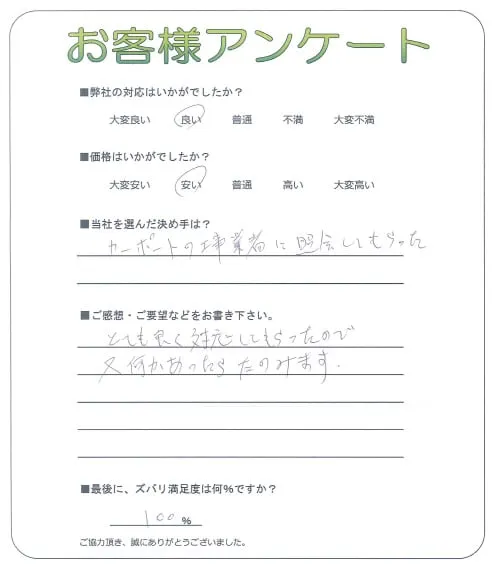 お客様アンケート
■弊社の対応はいかがでしたか？
大変良い 良い 普通 不満 大変不満
■価格はいかがでしたか？
大変安い 安い 普通 高い 大変高い
■当社を選んだ決め手は？
カーポートの工事業者に照会してもらった
■ご感想・ご要望などをお書き下さい。
とても良く対応してもらったので
又何かあったらたのみます.
■最後に、ズバリ満足度は何%ですか？
100%
ご協力頂き、誠にありがとうございました。